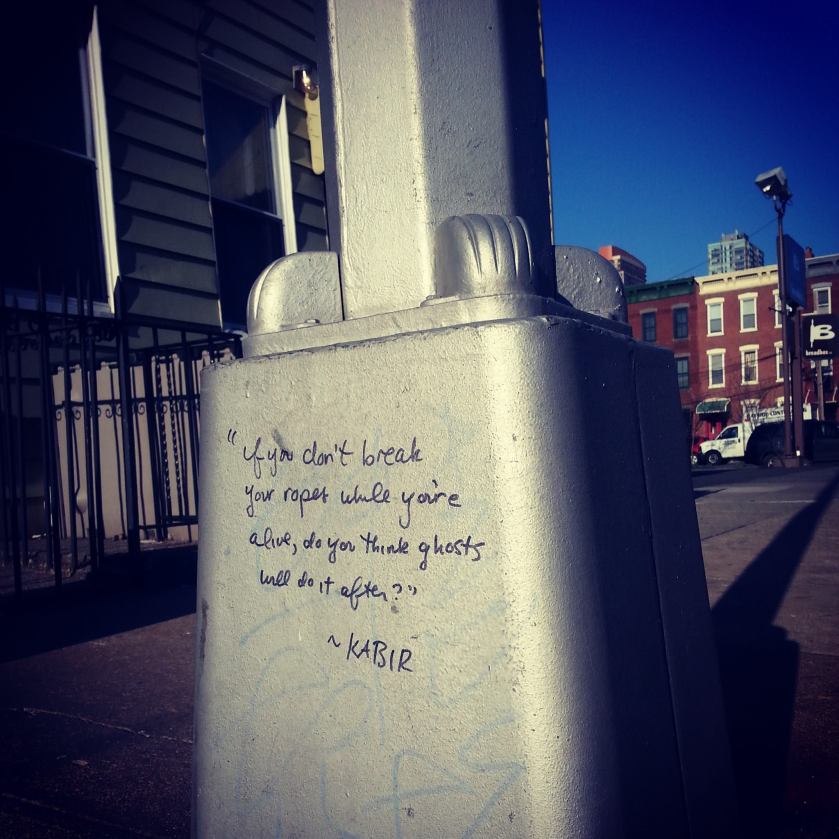 "if you don't break
your ropes while you're
alive, do you think ghosts
will do it after?"
~KABIR
B